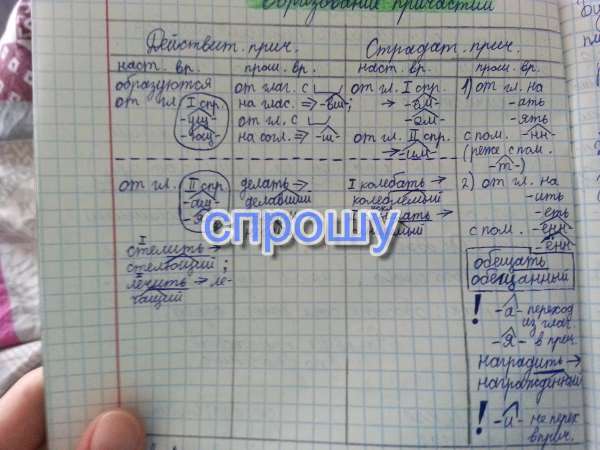 Образование причастий
Действит. прич.
Страдат. прич.
наст. вр.
прош. вр.
наст. вр.
прош. вр.
образуются
от гл. I спр.
-ущ-
-ющ-
от глаг. с
на глас. ⇒ -вш-
от гл. с
на согл. ⇒ -ш-
от гл. I спр.
→ -ем-
-ом-
от гл. II спр.
→ -им-
1) от гл. на
-ать
-ять
с пом. -нн-
(реже с пом.
-т-)
от гл. II спр.
-ащ-
I
стелить →
стелющий;
лечить → ле-
чащий
делать →
делавший
I колебать →
колеблемый
2) от гл. на
-ить
-еть
с пом. -енн-
-ённ-
обещать
обещанный
! -а- переход
из глаг.
-я- в прич.
наградить →
награждённый
! -и- не перех.
в прич.
спрошу